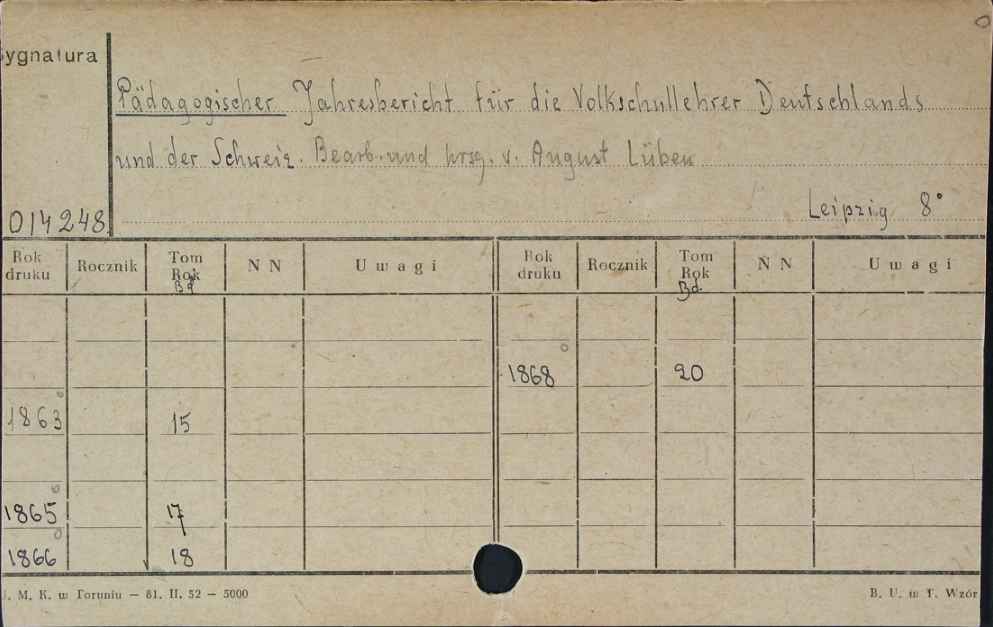 ygnatura
Pädagogischer Jahresbericht für die Volksschullehrer Deutschlands
und der Schweiz. Bearb. und hrsg. v. August Lüben
Leipzig 8°
014248
Rok druku Rocznik Tom Rok Bd NN Uwagi Rok druku Rocznik Tom Rok Bd. NN Uwagi
1868 20
1863 15
1865 17
1866 18
. M. K. w Toruniu — 81. II. 52 — 5000 B. U. w T. Wzór